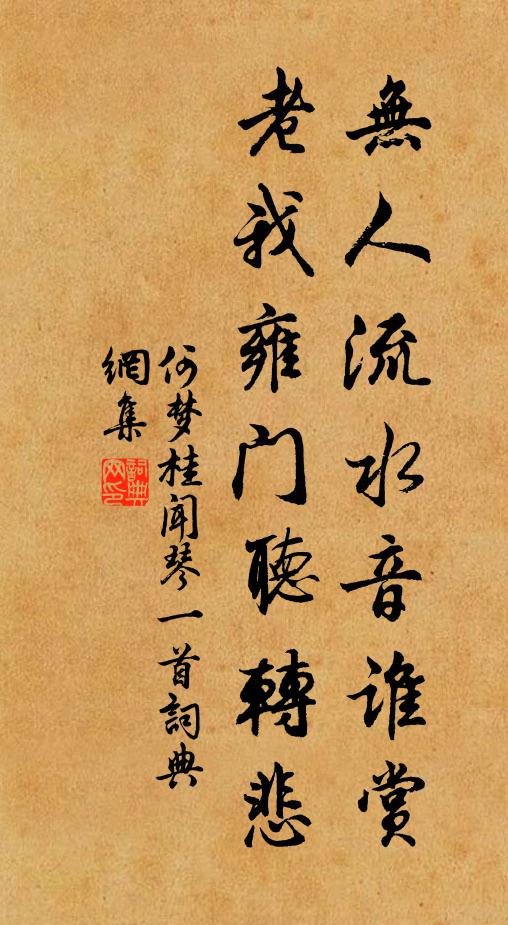 無人流水音誰賞
老我雍门聽轉悲
何梦桂闻琴一首詞典
網集
詞典網印